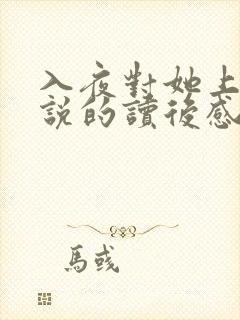 入夜對她上
說的讀後感
馬彧